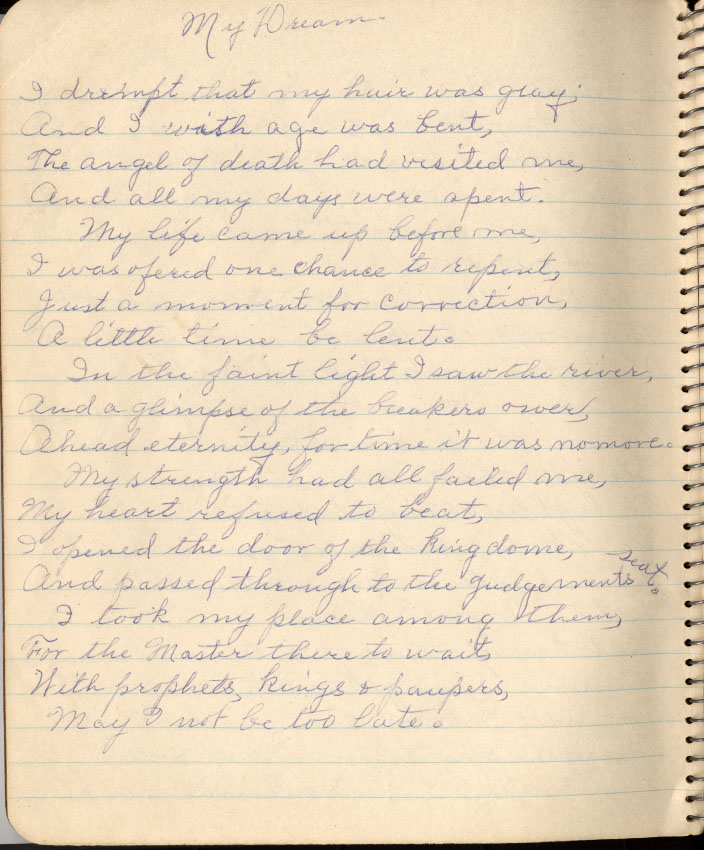 My Dream
I dreimpt that my hair was gray;
And I with age was bent,
The angel of death had visited me,
And all my days were spent.
My life came up before me,
I was ofered one chance to repent,
Just a moment for correction,
A little time be lent.
In the faint light I saw the river,
And a glimpse of the breakers ower,
Ahead eternity, for time it was nomore.
My strength had all failed me,
My heart refused to beat,
I opened the door of the kingdome,
And passed through to the judgements seat.
I took my place among them,
For the Master there to wait,
With prophets, kings & paupers,
May I not be too late.